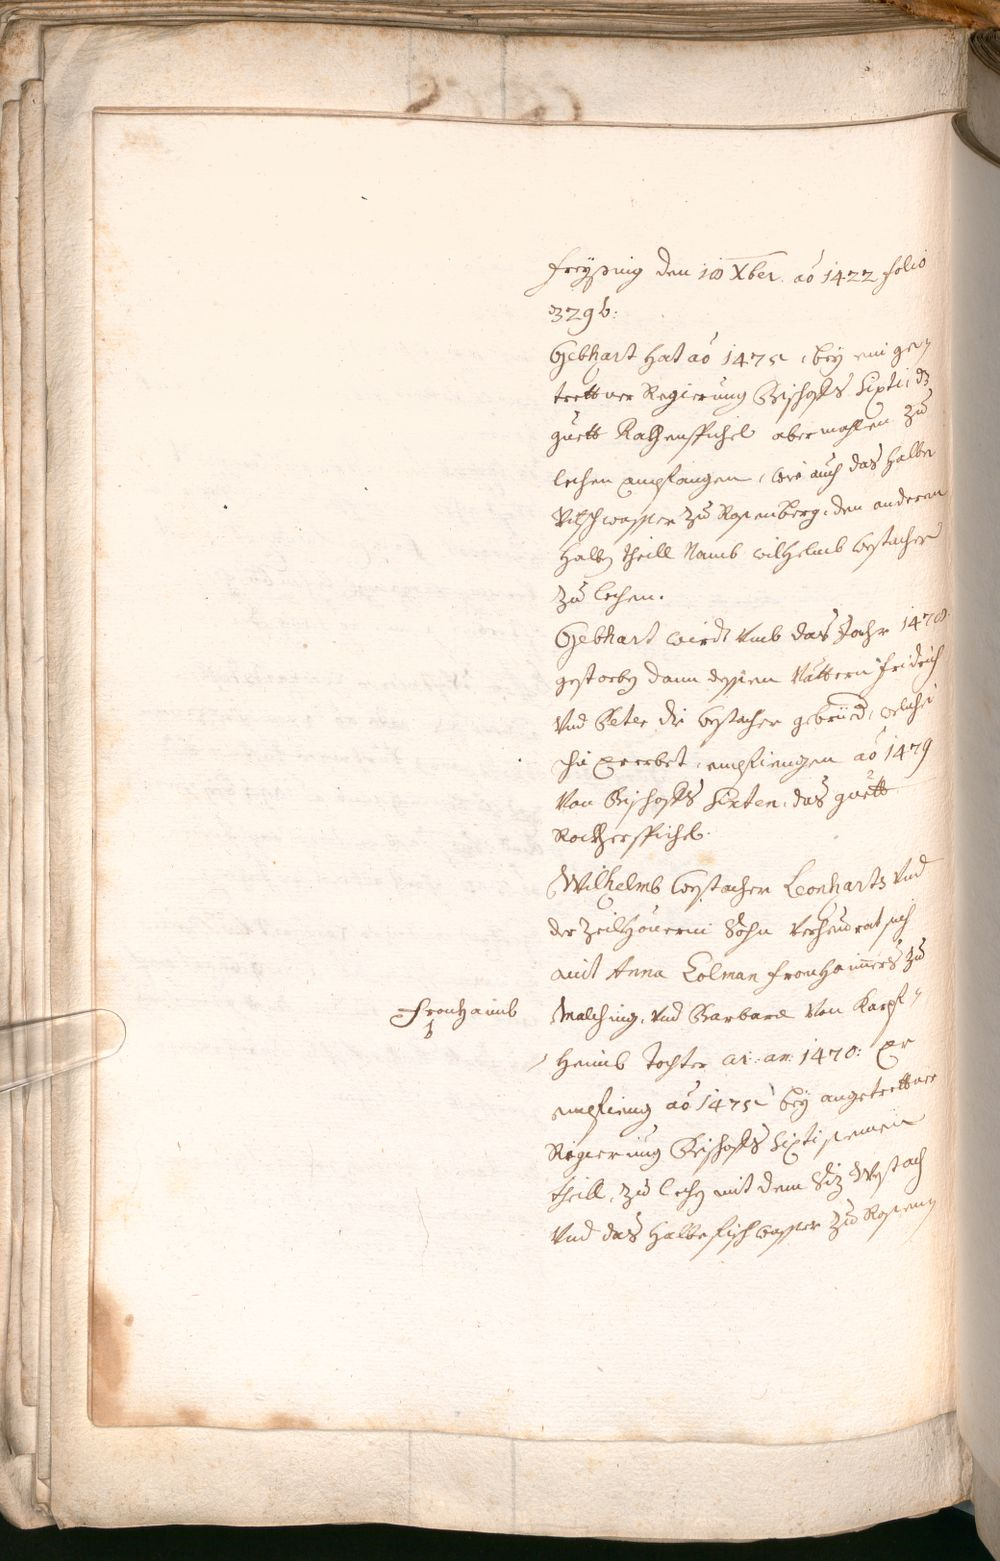 Freÿsing den 10 Xber. aõ 1422 folio
329 b:
Gebhart hat aõ 1475, beÿ ein ge,,
trettner Regierung Bischoffs Sixti, dz
guett Rathenpichel abermahlen zu
lechen empfangen, wie auch das halbe
Vischwasser zu Rosenberg, den anderen
halben theill Namb Wilhelmb Westacher
zu lechen.
Gebhart wirdt vmb das Jahr 1478.
gestorben dann dessen Vättern Fridrich
vnd Peter die Westacher gebrüed, welche
ihn Ererbet, empfiengen aõ 1479
von Bischoffs Sixten, das guett
Rothenpichel.
Wilhelmb Westacher Leonharts vnd
der Zeilhouerin Sohn verheurat sich
mit Anna Colman Fronhaimers zu
Fronhaimb
Malching, vnd Barbara von Karpf,,
heimb Tochter ai: an: 1470: Er
empfieng aõ 1475 beÿ angetrettner
Regierung Bischoffs Sixti seinen
theill, zu lechen mit dem Siz Westach
vnd das halbe fischwasser zu Rosen,,